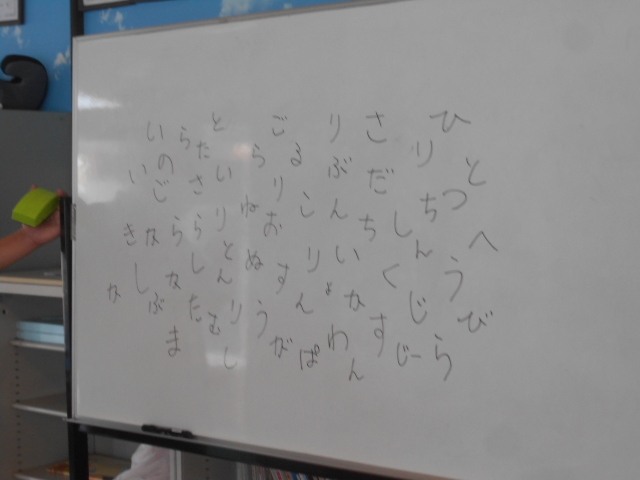 ひとつへうびら
りちんじじー
さだちしくす
りぶんいなわん
ごるこりょぱ
らりおすんが
といねぬう
りとんり
らたさらしたむし
いのごらなま
いなしぶ
きな